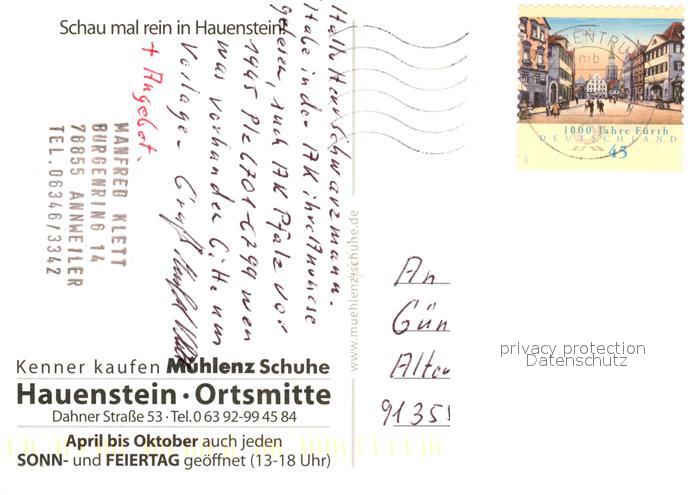 Schau mal rein in Hauenstein!
Hallo Herr Schwarzmann.
Habe in der AK ihre Annonce
gelesen, such AK Pfalz vor
1945 Plz 6701-6799 wen
was vorhanden bitte um
Vorlage. Gruß
+ Angebot.
MANFRED KLETT
BURGENRING 14
76855 ANNWEILER
TEL. 06346/3342
Kenner kaufen Mühlenz Schuhe
Hauenstein · Ortsmitte
Dahner Straße 53 · Tel. 0 63 92-99 45 84
April bis Oktober auch jeden
SONN- und FEIERTAG geöffnet (13-18 Uhr)
www.muehlenz-schuhe.de
ENTRUM
mb
1000 Jahre Fürth
DEUTSCHLAND
45
An
Gün
Alten
9135
privacy protection
Datenschutz